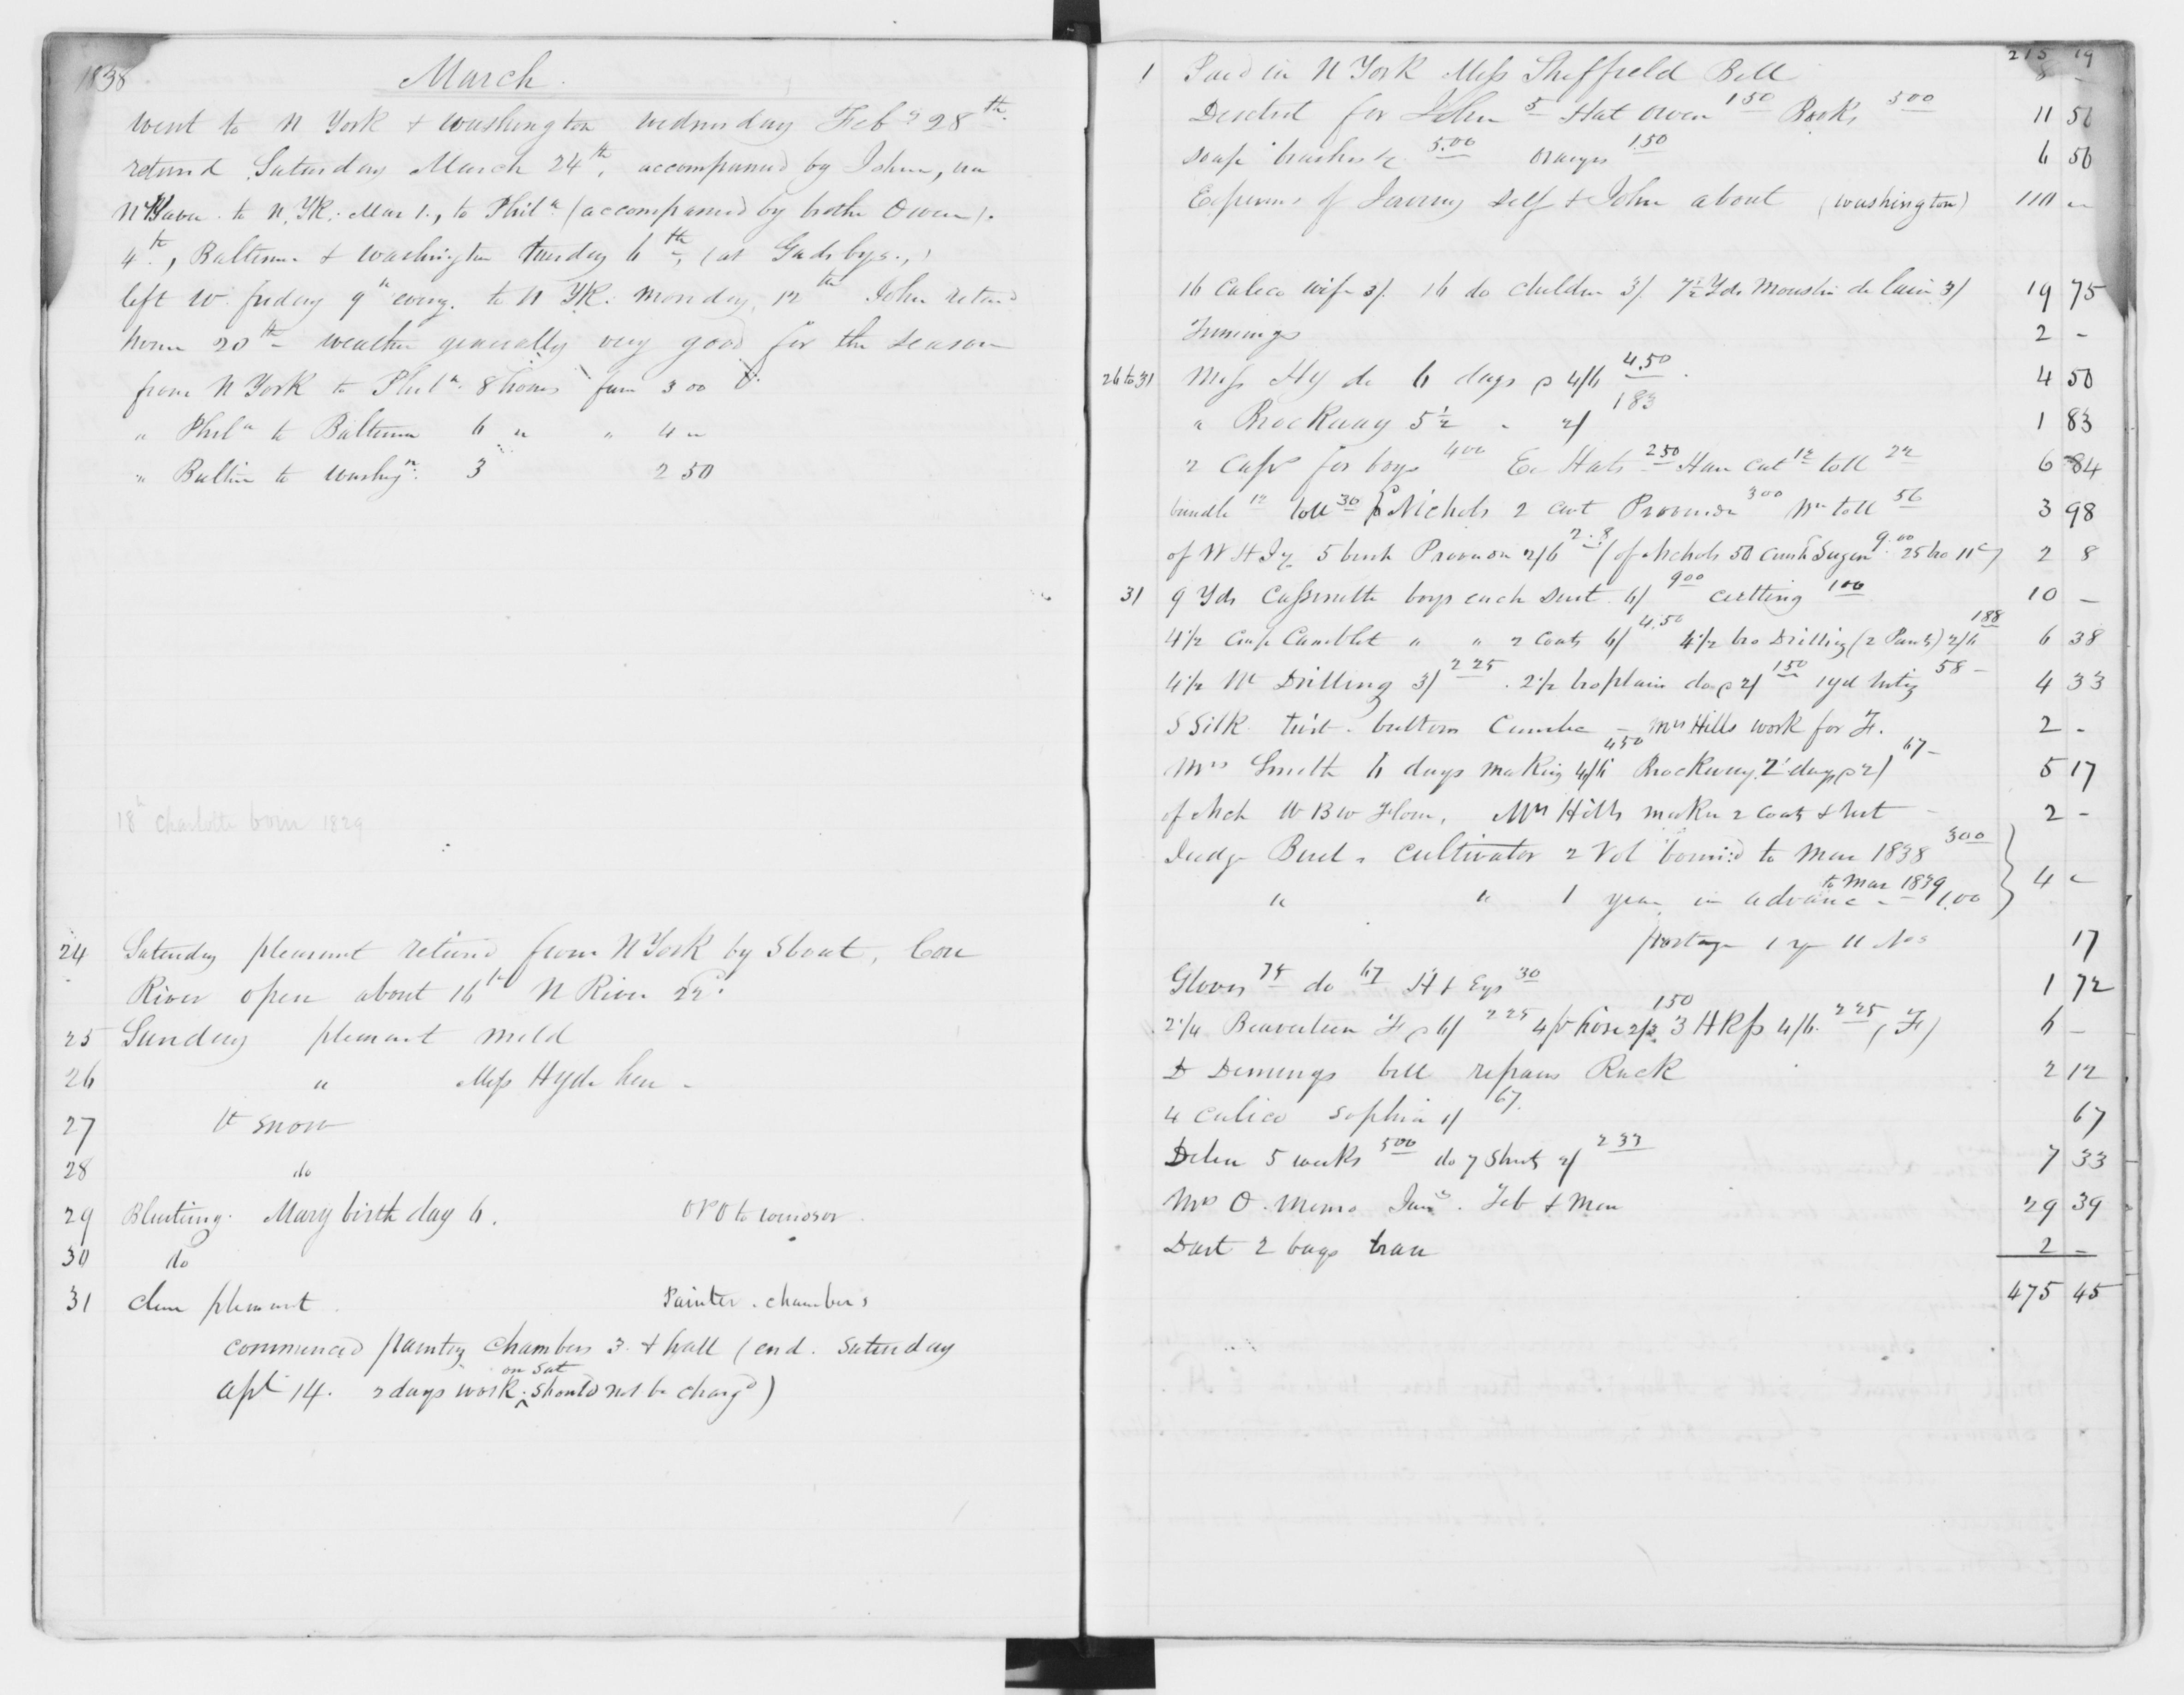 1838 March.
went to N York & Washington wednesday Feby 28th.
returnd Saturday March 24th, accompanied by Johnn, via
N Haven to N. YK: Mar 1., to Phila (accompanied by brothe Owen).
4th, Baltimr & Washington tuesday 6th, (at Gadsbys.,)
left W. friday 9th eveng. to N YK: monday, 12th John retd
home 20th - weather generally very good for the season
from N York to Phila. 8 hours fare 3 00
" Phila to Baltimre 6 " " 4 "
" Baltim to Washgn. 3 2 50
18th Charlotte born 1829
24 Saturday pleasant returnd from N York by Sboat, Con
River open about 16th N River 22d.
25 Sunday pleasant mild
26 " Miss Hyde here -
27 lt snow
28 do
29 Blusting. Mary birth day 6. to windsor
30 do
31 clear pleasant Painter. chambers
commenced paintg chambers 3 & hall (end. Saturday
apl 14. 2 days work on Sat should not be chargd)
215 19
1 Paid in N York Miss Sheffield Bill 8 -
for John 5 Hat Owen 1 50 Books 5 00 11 50
soap brushes &c 5.00 oranges 1.50 6 50
Expenses of Journey self & John about (washington) 110 "
16 Calico wife 3/ 16 do children 3/ 7½ Yds Mouslin de lain 3/ 19 75
Trimings 2 -
26 to 31 Miss Hyde 6 days @ 4/6 4.50 4 50
" Brockway 5½ " 2/ 183 1 83
2 Caps for boys 400 Ex Hats 2 50 Hair cut 12 toll 22 6 84
bundle 12 toll 30 Nichols 2 cwt Provendr 300 toll 56 3 98
of W H I 5 bush Provendr 2/6 2.8 (of Nichols 50 Sugar 9.00 25 bro 11c) 2 8
31 9 Yds Cassinette boys each suit 6/ 900 cutting 100 10 -
4½ Camblet " " 2 Coats 6/ 4.50 4½ bro Drilling (2 Pants) 2/6 188 6 38
4½ Drilling 3/ 2 25. 2½ bro plain do @ 2/ 1 50 1 yd 58 - 4 33
S Silk twist. buttons - Mrs Hills work for F. 2 -
Mrs Smith 6 days making 4/6 450 Brockway 2 days @ 2/ 67 - 5 17
of Mch Mrs Hills making 2 coats & vest - 2 -
Judge Buel " cultivator 2 Vol to Mar 1838 300
" " 1 year in advance to Mar 1839 1.00 4 "
postage 1 yr 11 Nos 17
Gloves 75 do 67 H & Eys 30 1 72
2¼ Beaverteen F @ 6/ 2 25 4 pr hose 2/3 150 3 HKfs 4/6 2 25 (F) 6 -
D Demings bill repairs Rack 2 12
4 calico Sophia 1/ 67. 67
5 weeks 500 do 7 Shirts 2/ 2 33 7 33
Mrs O. Memo Jany. Feb & Mar 29 39
Dart 2 bags bran 2 -
475 45